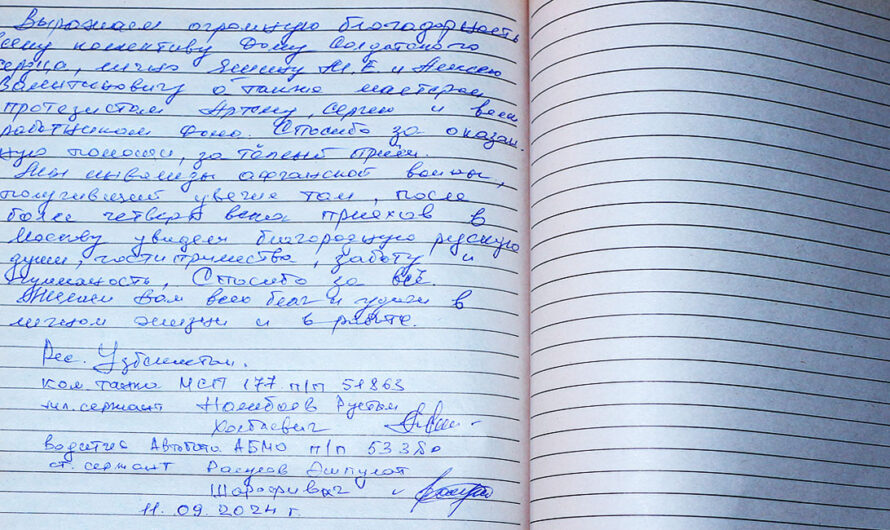 Выражаем огромную благодарность
всему колективу Дому Солдатского
сердца, лично Яшину М.Е. и Алексею
Валентиновичу а также мастерам
протезистам Артему, Сергею и всем
работникам дома. Спасибо за оказан-
ную помощь, за тёплый приём.
Мы инвалиды афганской войны,
получивший увечие там, после
более четверть века приехав в
Москву увидели благородную русскую
душу, гостиприимства, заботу и
гуманость, Спасибо за всё.
Желаем Вам всех благ и удачи в
личной жизни и в работе.
Рес. Узбекистан.
ком. танка МСП 177 п/п 51863
мл. сержант Рустам
Водитель АБМО п/п 53380
ст. сержант Расулов Эшпулат
Шарофивич
11.09.2024 г.